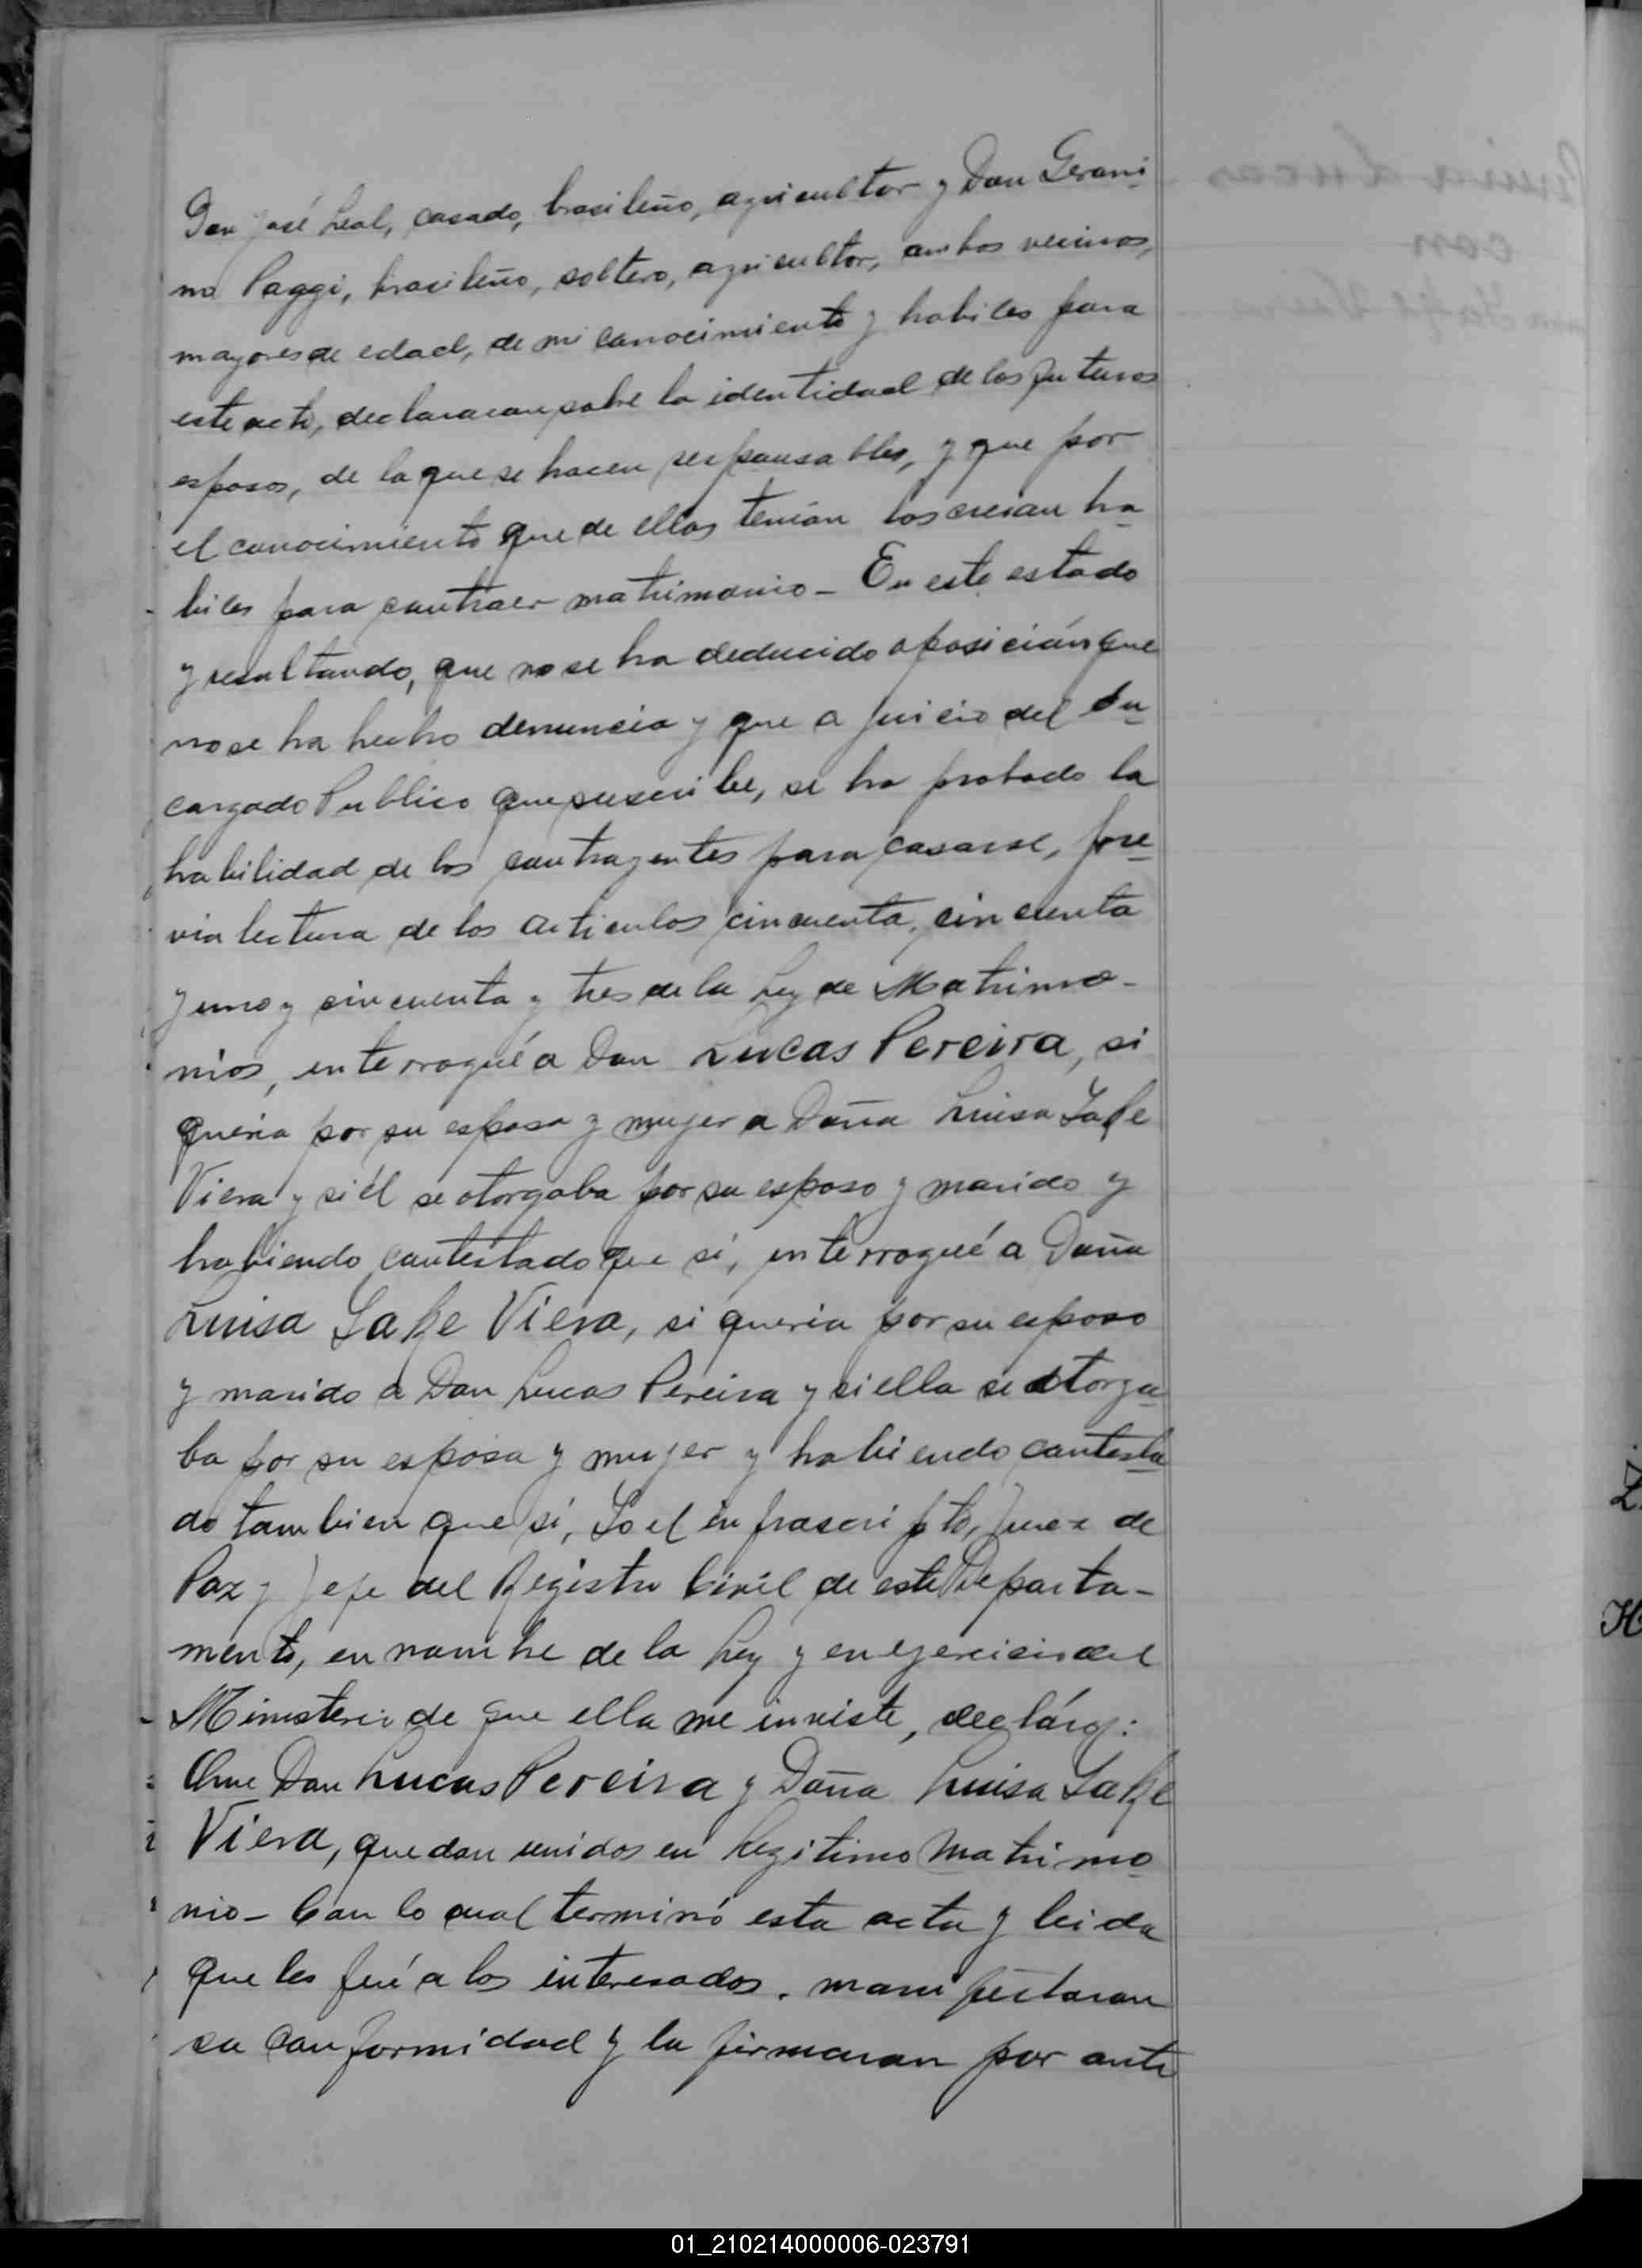 Don José Leal, casado, brasileño, agricultor y Don Geroni
mo Paggi, brasileño, soltero, agricultor, ambos vecinos,
mayores de edad, de mi conocimiento y habiles para
este acto, declararon sobre la identidad de los futuros
esposos, de la que se hacen responsables, y que por
el conocimiento que de ellos tenían los creian ha
biles para contraer matrimonio - En este estado
y resultando, que no se ha deducido oposición que
no se ha hecho denuncia y que a juicio del En
cargado Publico que suscribe, se ha probado la
habilidad de los contrayentes para casarse, pre
via lectura de los articulos cincuenta, cincuenta
y uno y cincuenta y tres de la Ley de Matrimo-
nios, interrogué a Don Lucas Pereira, si
queria por su esposa y mujer a Doña Luisa
Viera y si él se otorgaba por su esposo y marido y
habiendo contestado que sí, interrogué a Doña
Luisa Viera, si queria por su esposo
y marido a Don Lucas Pereira y si ella se otorga
ba por su esposa y mujer y habiendo contesta
do tambien que sí, Yo el infrascripto, Juez de
Paz y Jefe del Registro Civil de este Departa-
mento, en nombre de la Ley y en ejercicio del
Ministerio de que ella me inviste, declaro:
Que Don Lucas Pereira y Doña Luisa
Viera, quedan unidos en legitimo Matrimo
nio - Con lo cual terminó esta acta y leida
que les fué a los interesados, manifestaron
su conformidad y la firmaron por ante
Lucas
con
01_210214000006-023791